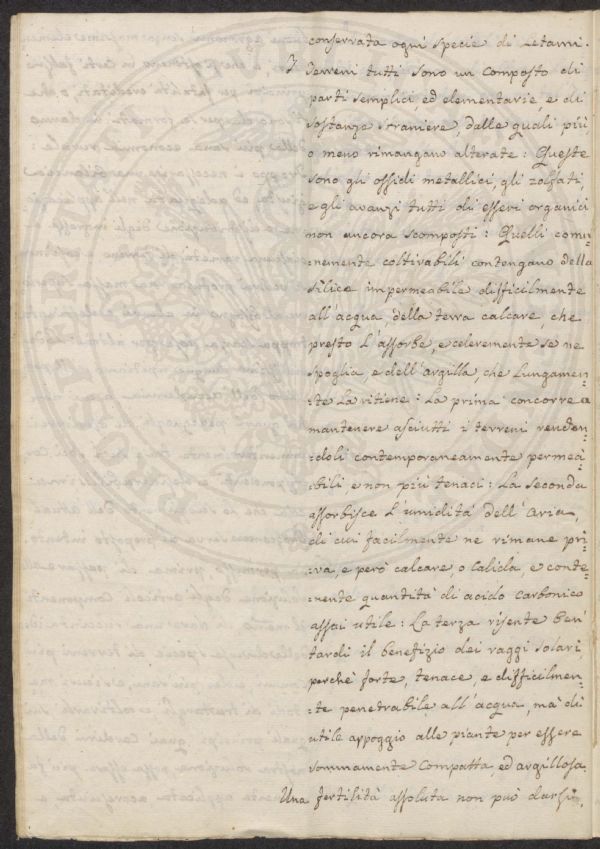 conservata ogni specie di Letami.
I Terreni tutti sono un composto di
parti semplici, ed elementarie, e di
sostanze straniere, dalle quali più
o meno rimangano alterate: Queste
sono gli ossidi metallici, gli zolfati,
e gli avanzi tutti di esseri organici
non ancora scomposti: Quelli comu
=nemente coltivabili contengano della
silice impermeabile difficilmente
all'acqua, della terra calcare, che
presto l'assorbe, e celeremente se ne
spoglia, e dell'argilla, che Lungamen=
=te La ritiene: La prima concorre a
mantenere asciutti i terreni renden=
=doli contemporaneamente permea=
=bili, e non più tenaci: La seconda
assorbisce L'umidità dell'Aria,
di cui facilmente ne rimane pri=
=va, e però calcare, o calida, e conte=
=nente quantità di acido carbonico
assai utile: La terza risente ben
tardi il benefizio dei raggi solari,
perchè forte, tenace, e difficilmen=
=te penetrabile all'acqua, mà di
utile appoggio alle piante per essere
sommamente compatta, ed argillosa.
Una fertilità assoluta non può darsi,